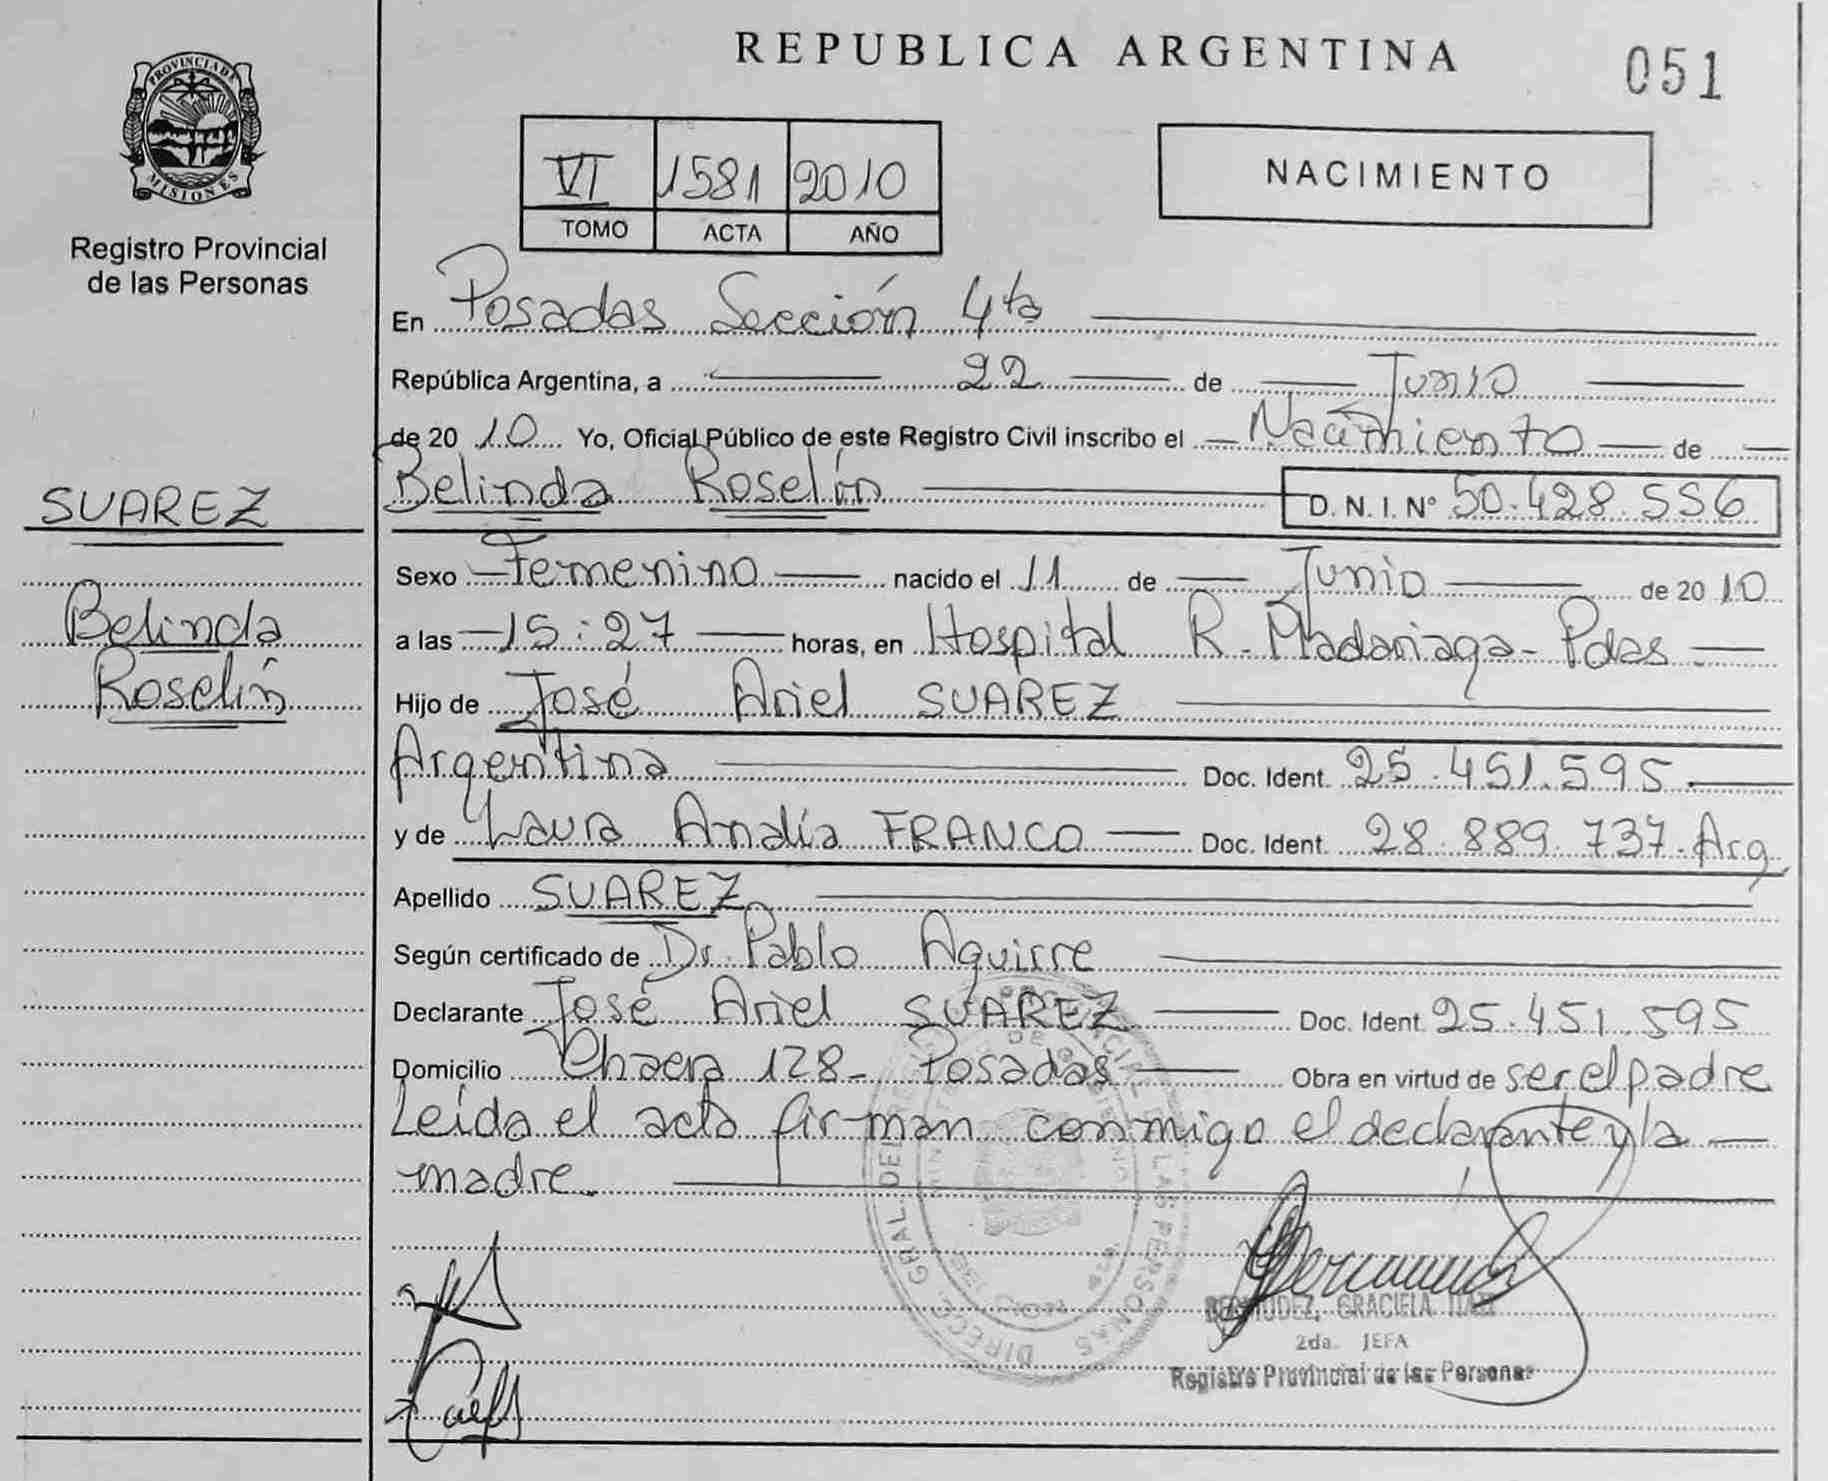 REPUBLICA ARGENTINA
051
PROVINCIA DE
MISIONES
Registro Provincial
de las Personas
VI 1581 2010
TOMO ACTA AÑO
NACIMIENTO
En Posadas Sección 4ta
República Argentina, a 22 de Junio
de 20 10 Yo, Oficial Público de este Registro Civil inscribo el Nacimiento de
Belinda Roselín D. N. I. Nº 50.428.556
SUAREZ
Belinda
Roselín
Sexo Femenino nacido el 11 de Junio de 20 10
a las 15:27 horas, en Hospital R. Madariaga - Pdas.
Hijo de José Ariel SUAREZ
Argentina Doc. Ident. 25.451.595
y de Laura Analía FRANCO Doc. Ident. 28.889.737. Arg.
Apellido SUAREZ
Según certificado de Dr. Pablo Aguirre
Declarante José Ariel SUAREZ Doc. Ident. 25.451.595
Domicilio Chacra 128 - Posadas Obra en virtud de ser el padre
Leída el acta firman conmigo el declarante y la
madre.
DIRECC. GRAL. DEL LAS PERSONAS
BERMUDEZ, GRACIELA ITATI
2da. JEFA
Registro Provincial de las Personas